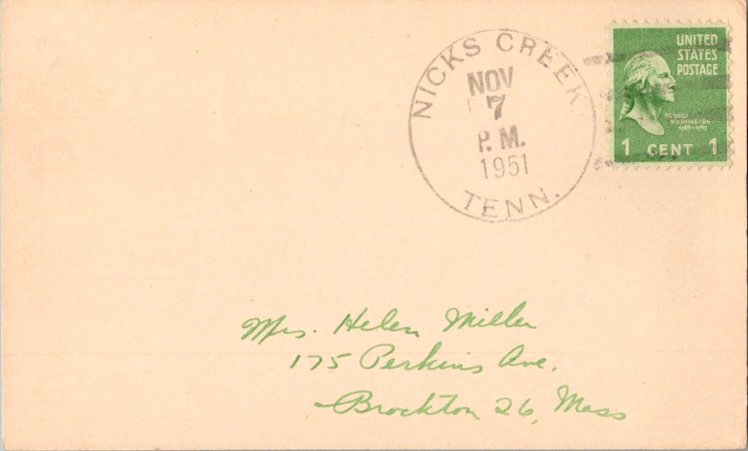 NICKS CREEK
NOV
7
P.M.
1951
TENN.
UNITED
STATES
POSTAGE
GEORGE
WASHINGTON
1789-1797
1 CENT 1
Mrs. Helen Miller
175 Perkins Ave.
Brockton 26, Mass